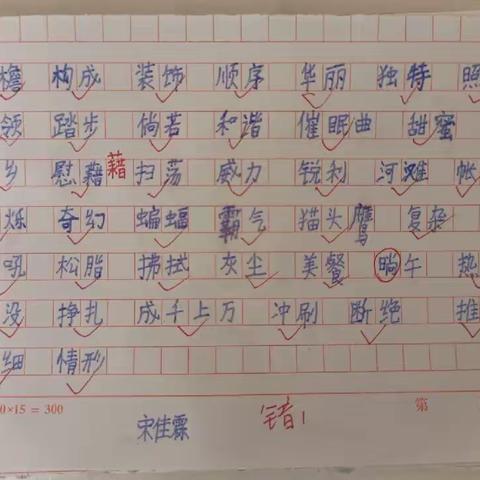 檐 构成 装饰 顺序 华丽 独特 照
领 踏步 倘若 和谐 催眠曲 甜蜜
乡 慰藉 藉 扫荡 威力 锐利 河滩 帐
烁 奇幻 蝙蝠 霸气 猫头鹰 复杂
吼 松脂 拂拭 灰尘 美餐 晌午 热
没 挣扎 成千上万 冲刷 断绝 推
细 情形
0×15＝300 第
宋佳霖 错1